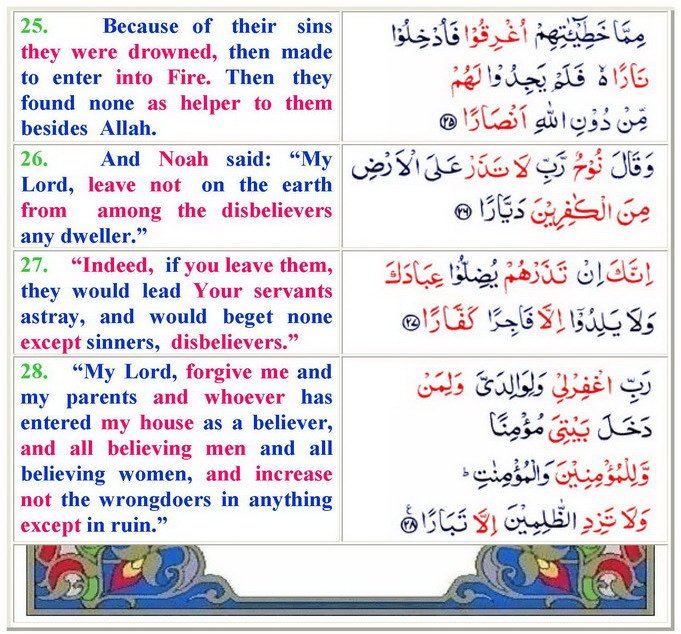 25. Because of their sins
they were drowned, then made
to enter into Fire. Then they
found none as helper to them
besides Allah.
مِمَّا خَطِيْٓـٰٔتِهِمْ اُغْرِقُوْا فَاُدْخِلُوْا
نَارًا ۙ۬ فَلَمْ يَجِدُوْا لَهُمْ
مِّنْ دُوْنِ اللّٰهِ اَنْصَارًا ۝۲۵
26. And Noah said: “My
Lord, leave not on the earth
from among the disbelievers
any dweller.”
وَقَالَ نُوْحٌ رَّبِّ لَا تَذَرْ عَلَى الْاَرْضِ
مِنَ الْكٰفِرِيْنَ دَيَّارًا ۝۲۶
27. “Indeed, if you leave them,
they would lead Your servants
astray, and would beget none
except sinners, disbelievers.”
اِنَّكَ اِنْ تَذَرْهُمْ يُضِلُّوْا عِبَادَكَ
وَلَا يَلِدُوْۤا اِلَّا فَاجِرًا كَفَّارًا ۝۲۷
28. “My Lord, forgive me and
my parents and whoever has
entered my house as a believer,
and all believing men and all
believing women, and increase
not the wrongdoers in anything
except in ruin.”
رَبِّ اغْفِرْلِيْ وَلِوَالِدَيَّ وَلِمَنْ
دَخَلَ بَيْتِيَ مُؤْمِنًا
وَّلِلْمُؤْمِنِيْنَ وَالْمُؤْمِنٰتِ ؕ
وَلَا تَزِدِ الظّٰلِمِيْنَ اِلَّا تَبَارًا ۝۲۸ ع